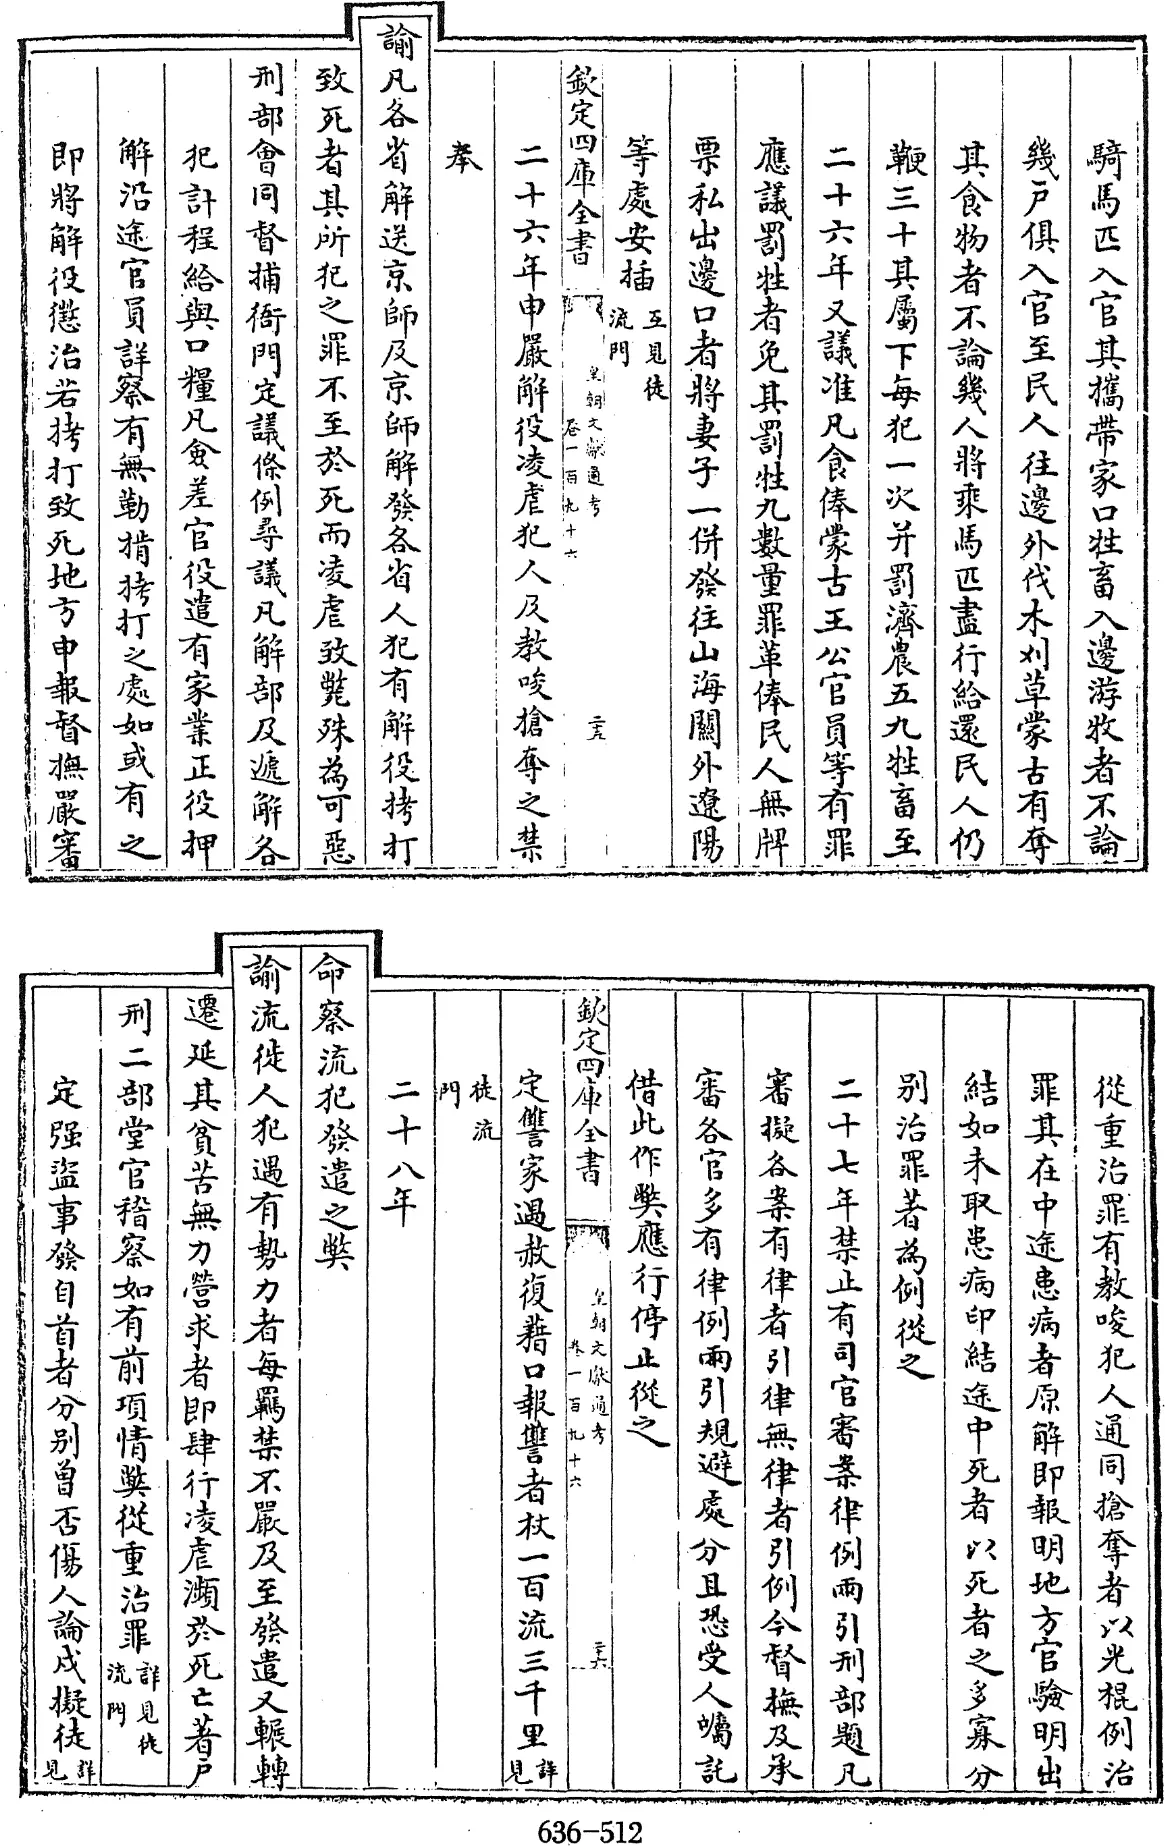 騎馬匹入官其攜帶家口牲畜入邊游牧者不論
幾戶俱入官至民人往邊外伐木刈草蒙古有奪
其食物者不論幾人將乘馬匹盡行給還民人仍
鞭三十其屬下每犯一次并罰濟農五九牲畜至
二十六年又議准凡食俸蒙古王公官員等有罪
應議罰牲者免其罰牲九數量罪革俸民人無牌
票私出邊口者將妻子一併發往山海關外遼陽
等處安插互見徒流門
欽定四庫全書 皇朝文獻通考 卷一百九十六 二十五
二十六年申嚴解役凌虐犯人及教唆搶奪之禁
奉
諭凡各省解送京師及京師解發各省人犯有解役拷打
致死者其所犯之罪不至於死而凌虐致斃殊為可惡
刑部會同督捕衙門定議條例尋議凡解部及遞解各
犯計程給與口糧凡僉差官役遣有家業正役押
解沿途官員詳察有無勒掯拷打之處如或有之
即將解役懲治若拷打致死地方申報督撫嚴審
從重治罪有教唆犯人通同搶奪者以光棍例治
罪其在中途患病者原解即報明地方官驗明出
結如未取患病印結途中死者以死者之多寡分
別治罪著為例從之
二十七年禁止有司官審案律例兩引刑部題凡
審擬各案有律者引律無律者引例今督撫及承
審各官多有律例兩引規避處分且恐受人囑託
借此作弊應行停止從之
欽定四庫全書 皇朝文獻通考 卷一百九十六 二十六
定讐家遇赦復藉口報讐者杖一百流三千里詳見
徒流門
二十八年
命察流犯發遣之弊
諭流徙人犯遇有勢力者每羈禁不嚴及至發遣又輾轉
遷延其貧苦無力營求者即肆行凌虐瀕於死亡著戶
刑二部堂官稽察如有前項情弊從重治罪詳見徒流門
定强盜事發自首者分別曾否傷人論戍擬徒詳見
636-512